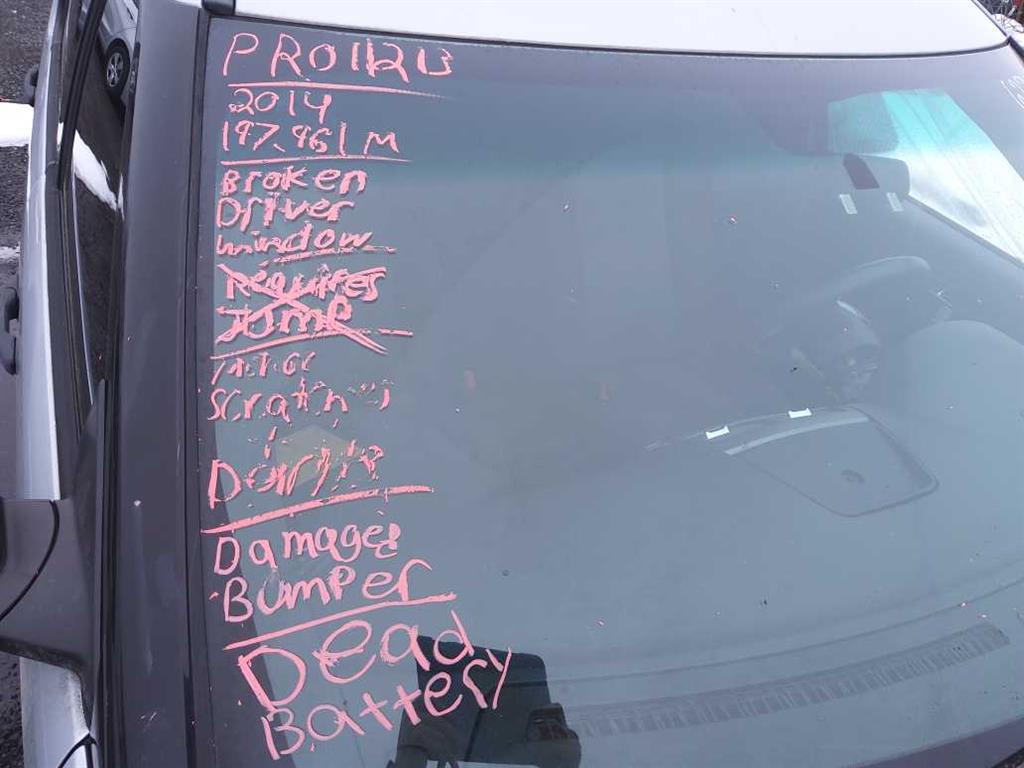 2014
197,961 M
Broken
Driver
window
Requires
Jump
Scratches
Damaged
Bumper
Dead
Battery